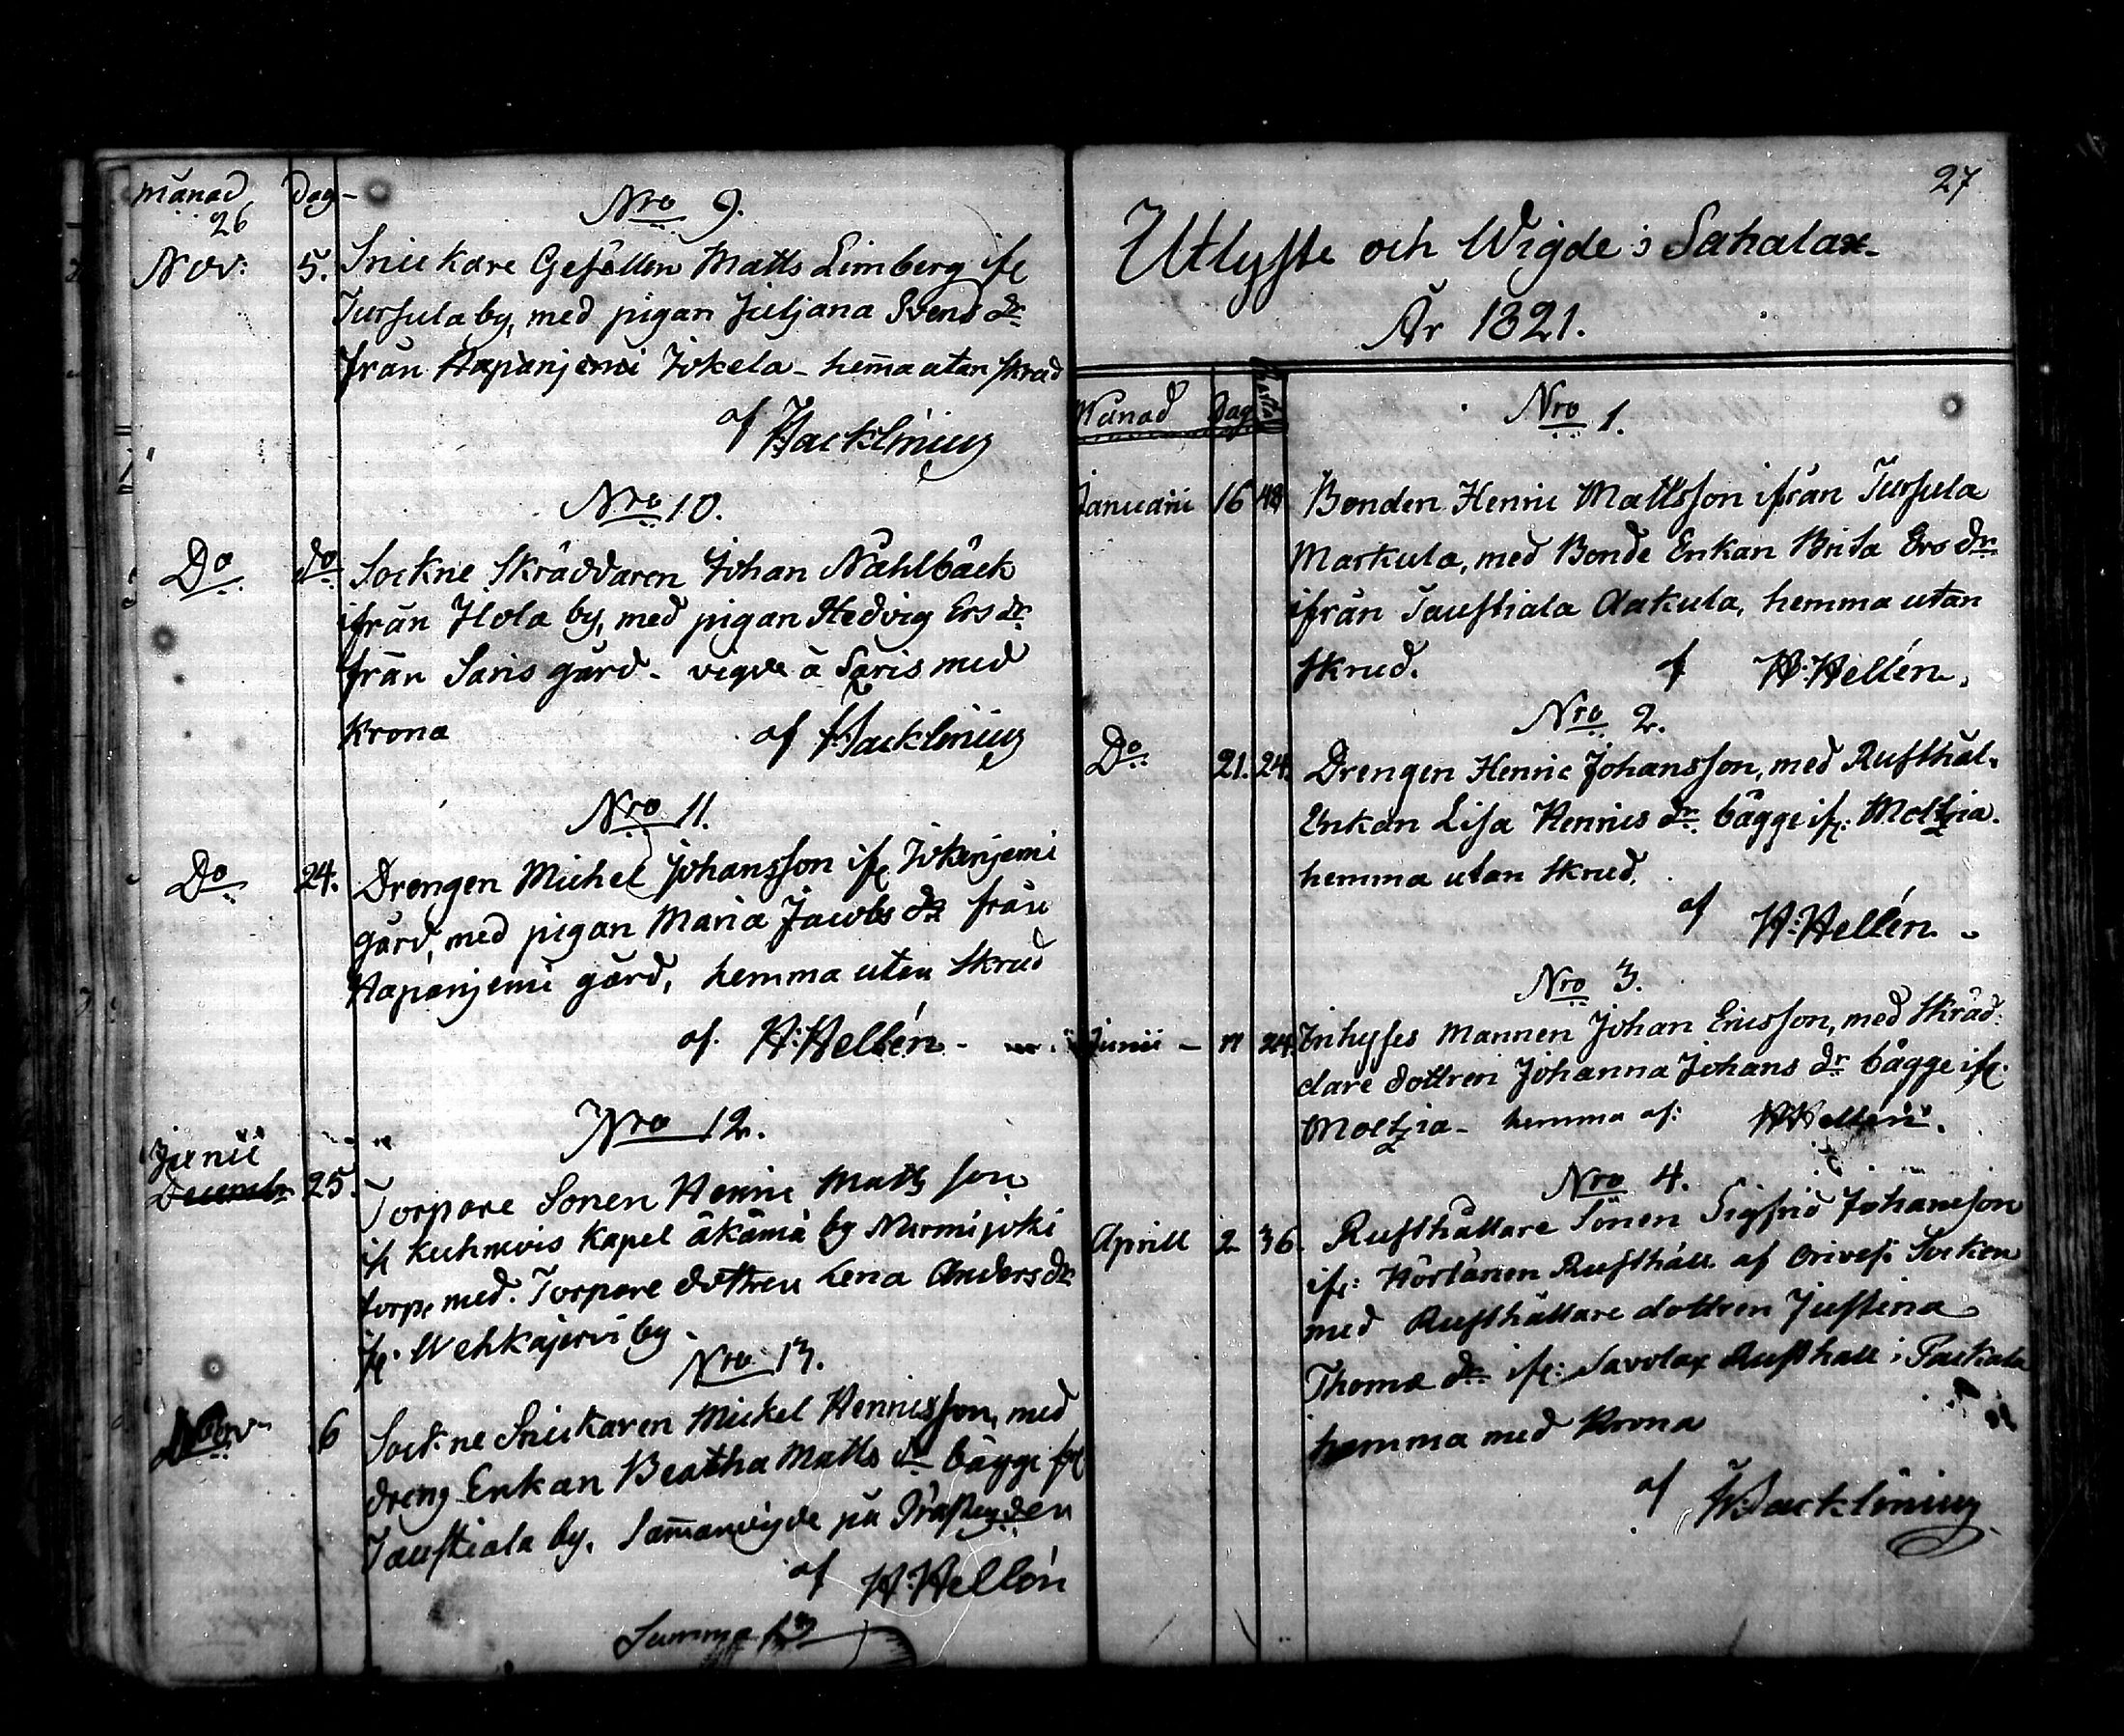 Månad Dag
26
Nro 9.
Nov: 5. Snickare Gesällen Matts Limberg ifr
Tursula by, med pigan Juljana Svens dr
från Hapanjemi Jokela - hem̄a utan skrud
af Hacklinius
Nro 10.
Do do Sockne Skräddaren Johan Nåhlbäck
ifrån Ilola by, med pigan Hedvig Ers dr
från Saris gård - vigde å Saris med
krona af Hacklinius
Nro 11.
Do 24. Drengen Michel Johansson ifr Jokenjemi
gård, med pigan Maria Jacobs dr från
Hapanjemi gård, hemma utan skrud
af. H: Hellén -
Nro 12.
Junii
Decembr 25. Torpare Sonen Henric Matts son
ifr Kuhmois Kapel äkämä by Nurmijoki
torp, med Torpare dottren Lena Anders dr
ifr: Wehkajervi by -
Nro 13.
Nov 6 Sockne Snickaren Mickel Henricsson, med
dreng Enkan Beatha Matts dr bägge ifr
Taustiala by. Sam̄anvigde på
af H: Hellén
Summa 13
27
Utlyste och Wigde i Sahalax
År 1821.
Månad Dag
Nro 1.
Januarii 16 48 Bonden Henric Mattsson ifrån Tursula
Markula, med Bonde Enkan Brita Ers dr
ifrån Taustiala Aakula, hemma utan
skrud. af H: Hellén.
Nro 2.
Do 21. 24. Drengen Henric Johansson, med Rusthål.
Enkan Lisa Henrics dr bägge ifr: Moltzia.
hemma utan skrud.
af H: Hellén -
Nro 3.
Junii - 11 24. Inhyses Mannen Johan Ericsson, med Skräd:
dare dottren Johanna Johans dr bägge ifr:
Moltzia - hemma af: H Hellén.
Nro 4.
Aprill 2 36. Rusthållare Sonen Sigfrid Johansson
ifr: Hörtänen Rusthåll af Orivesi Socken
med Rusthållare dottren Justina
Thomæ dr ifr: Savolax Rusthåll i Pakkala
hemma med Krona
af Hacklinius